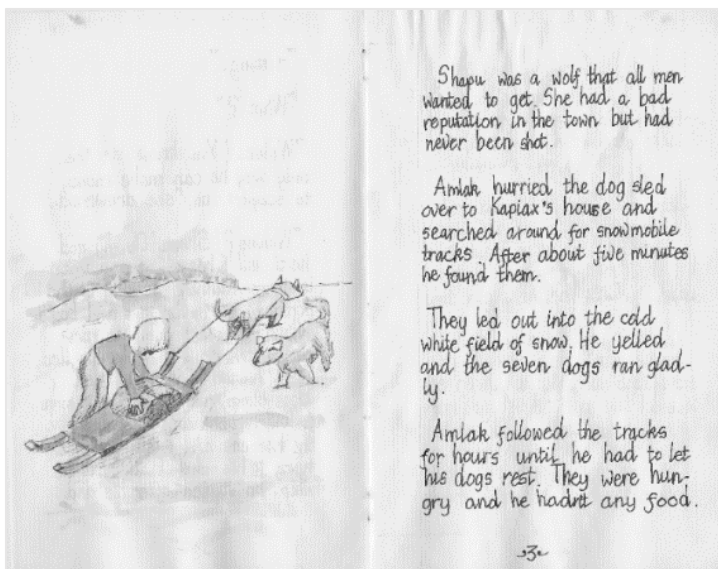 Shapu was a wolf that all men
wanted to get. She had a bad
reputation in the town but had
never been shot.
Amlak hurried the dog sled
over to Kaplax's house and
searched around for snowmobile
tracks. After about five minutes
he found them.
They led out into the cold
white field of snow. He yelled
and the seven dogs ran glad-
ly.
Amlak followed the tracks
for hours until he had to let
his dogs rest. They were hun-
gry and he hadn't any food.
3